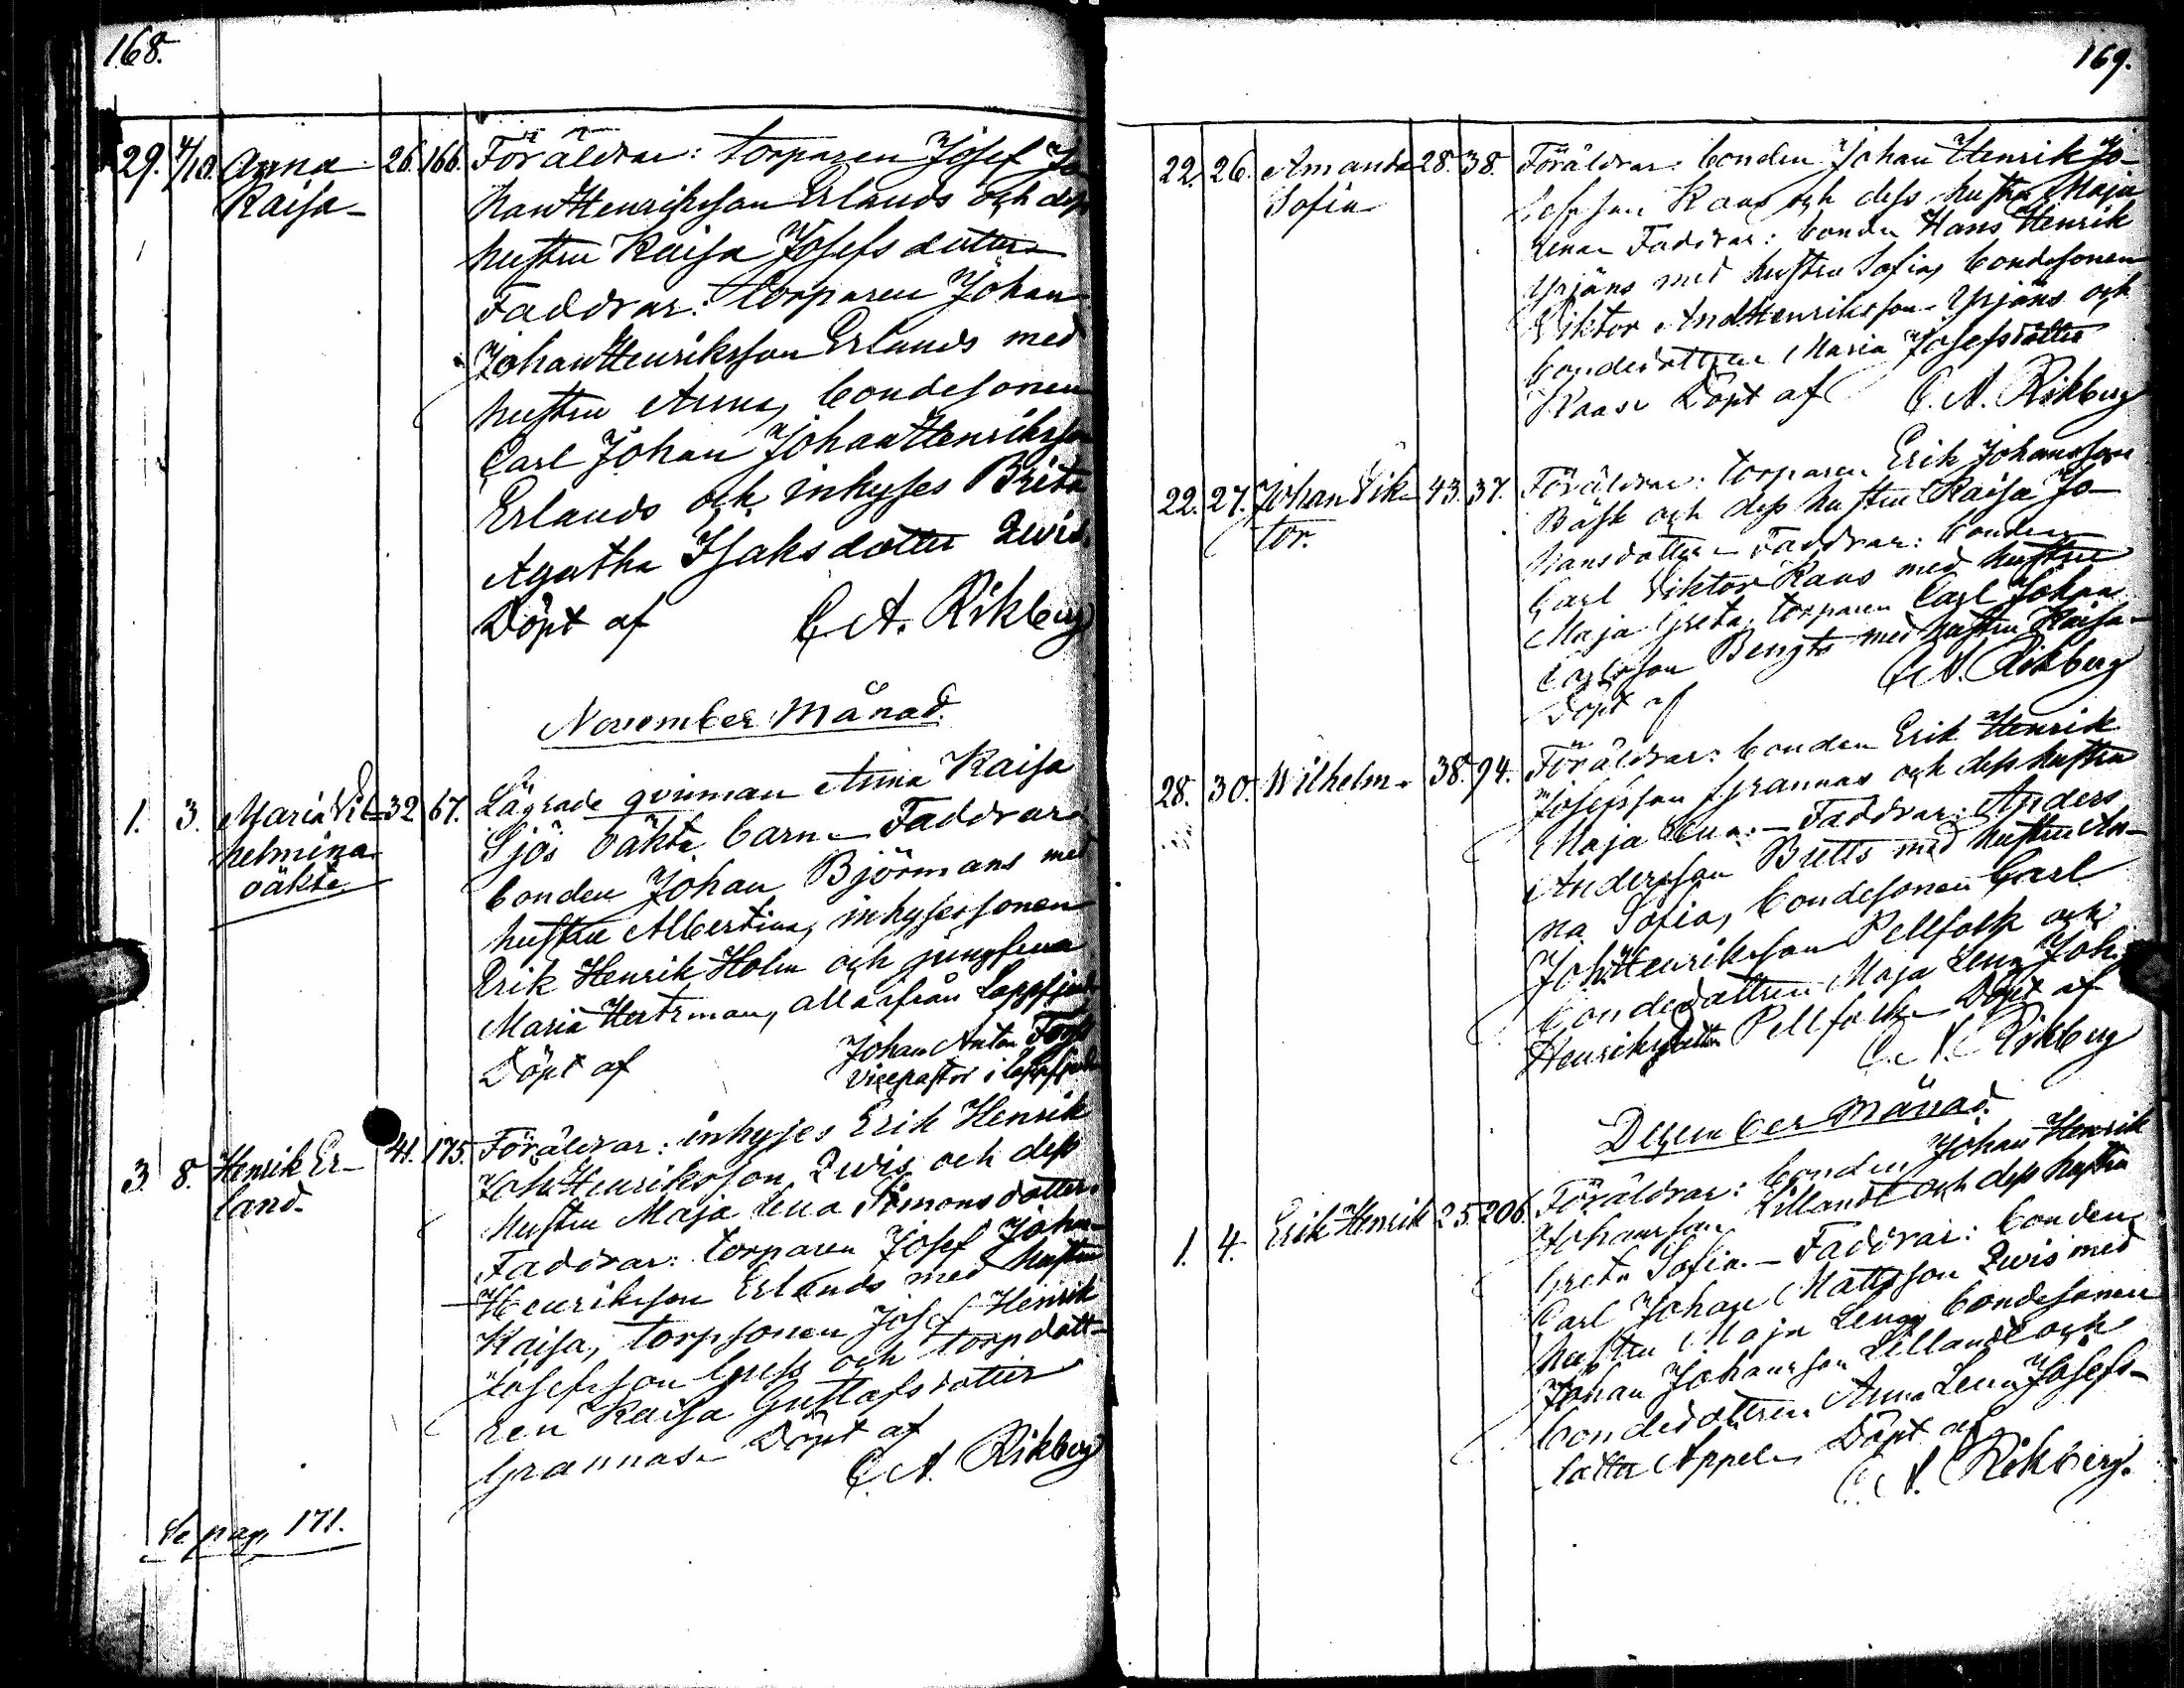 168.
29. 4/10. Anna 26. 166. Föräldrar: torparen Josef Jo
Kaisa hanHenriksson Erlands och dess
hustru Kaisa Josefsdotter
Faddrar: torparen Johan
JohanHenriksson Erlands med
hustru Anna, bondesonen
Carl Johan JohanHenriksson
Erlands och inhyses Brita
Agatha Isaksdotter Qvis.
Döpt af C. A. Rikberg
November Månad.
1. 3. Maria Vil- 32 67. Lägrade qvinnan Anna Kaisa
helmina Sjös oäkta barn. Faddrar
oäkta bonden Johan Björmans med
hustru Albertina, inhysessonen
Erik Henrik Holm och jungfrun
Maria Hertzman, alla ifrån Lappfjerd
Döpt af Johan Anton
Vicepastor i Lappfjerd
3. 8. Henrik Er- 41. 175. Föräldrar: inhyses Erik Henrik
land. JohHenriksson Qvis och dess
hustru Maja Lena Simonsdotter.
Faddrar: torparen Josef Johan
Henriksson Erlands med hustru
Kaisa, torpsonen Josef Henrik
Josefsson och torpdott-
ren Kaisa Gustafsdotter
Grannas. Döpt af
C. A. Rikberg
Se pag. 171.
169.
22. 26. Amanda 28. 38. Föräldrar: bonden Johan Henrik Jo-
Sofia sefsson Kaas och dess hustru Maja
Lena Faddrar: bonden Hans Henrik
Yrjäns med hustru Sofia, bondesonen
Viktor AndHenriksson Yrjäns och
bondedottren Maria Josefsdotter
Kaas. Döpt af C. A. Rikberg
22. 27. Johan Vik- 43. 37. Föräldrar: torparen Erik Johansson
tor. Bäsk och dess hustru Kaisa Jo-
hansdotter Faddrar: bonden
Carl Viktor Kaas med hustru
Maja Greta, torparen Carl Johan
Carlsson Bengts med hustru Kaisa.
Döpt af C. A. Rikberg
28. 30. Wilhelm. 38. 94. Föräldrar: bonden Erik Henrik
Josefsson Grannas och dess hustru
Maja Lena. — Faddrar: Anders
Andersson Butts med hustru An-
na Sofia, bondesonen Carl
JohHenriksson Pellfolk och
bondedottren Maja Lena Joh
Henriksdotter Pellfolk. Döpt af
C. A. Rikberg
Dezember Månad.
1. 4. Erik Henrik 25. 206. Föräldrar: bonden Johan Henrik
Johansson Lillandt och dess hustru
Greta Sofia. — Faddrar: bonden
Carl Johan Mattsson Qvis med
hustru Maja Lena, bondesonen
Johan Johansson Lillandt och
bondedottren Anna Lena Josefs-
dotter Appel. Döpt af
C. A. Rikberg.